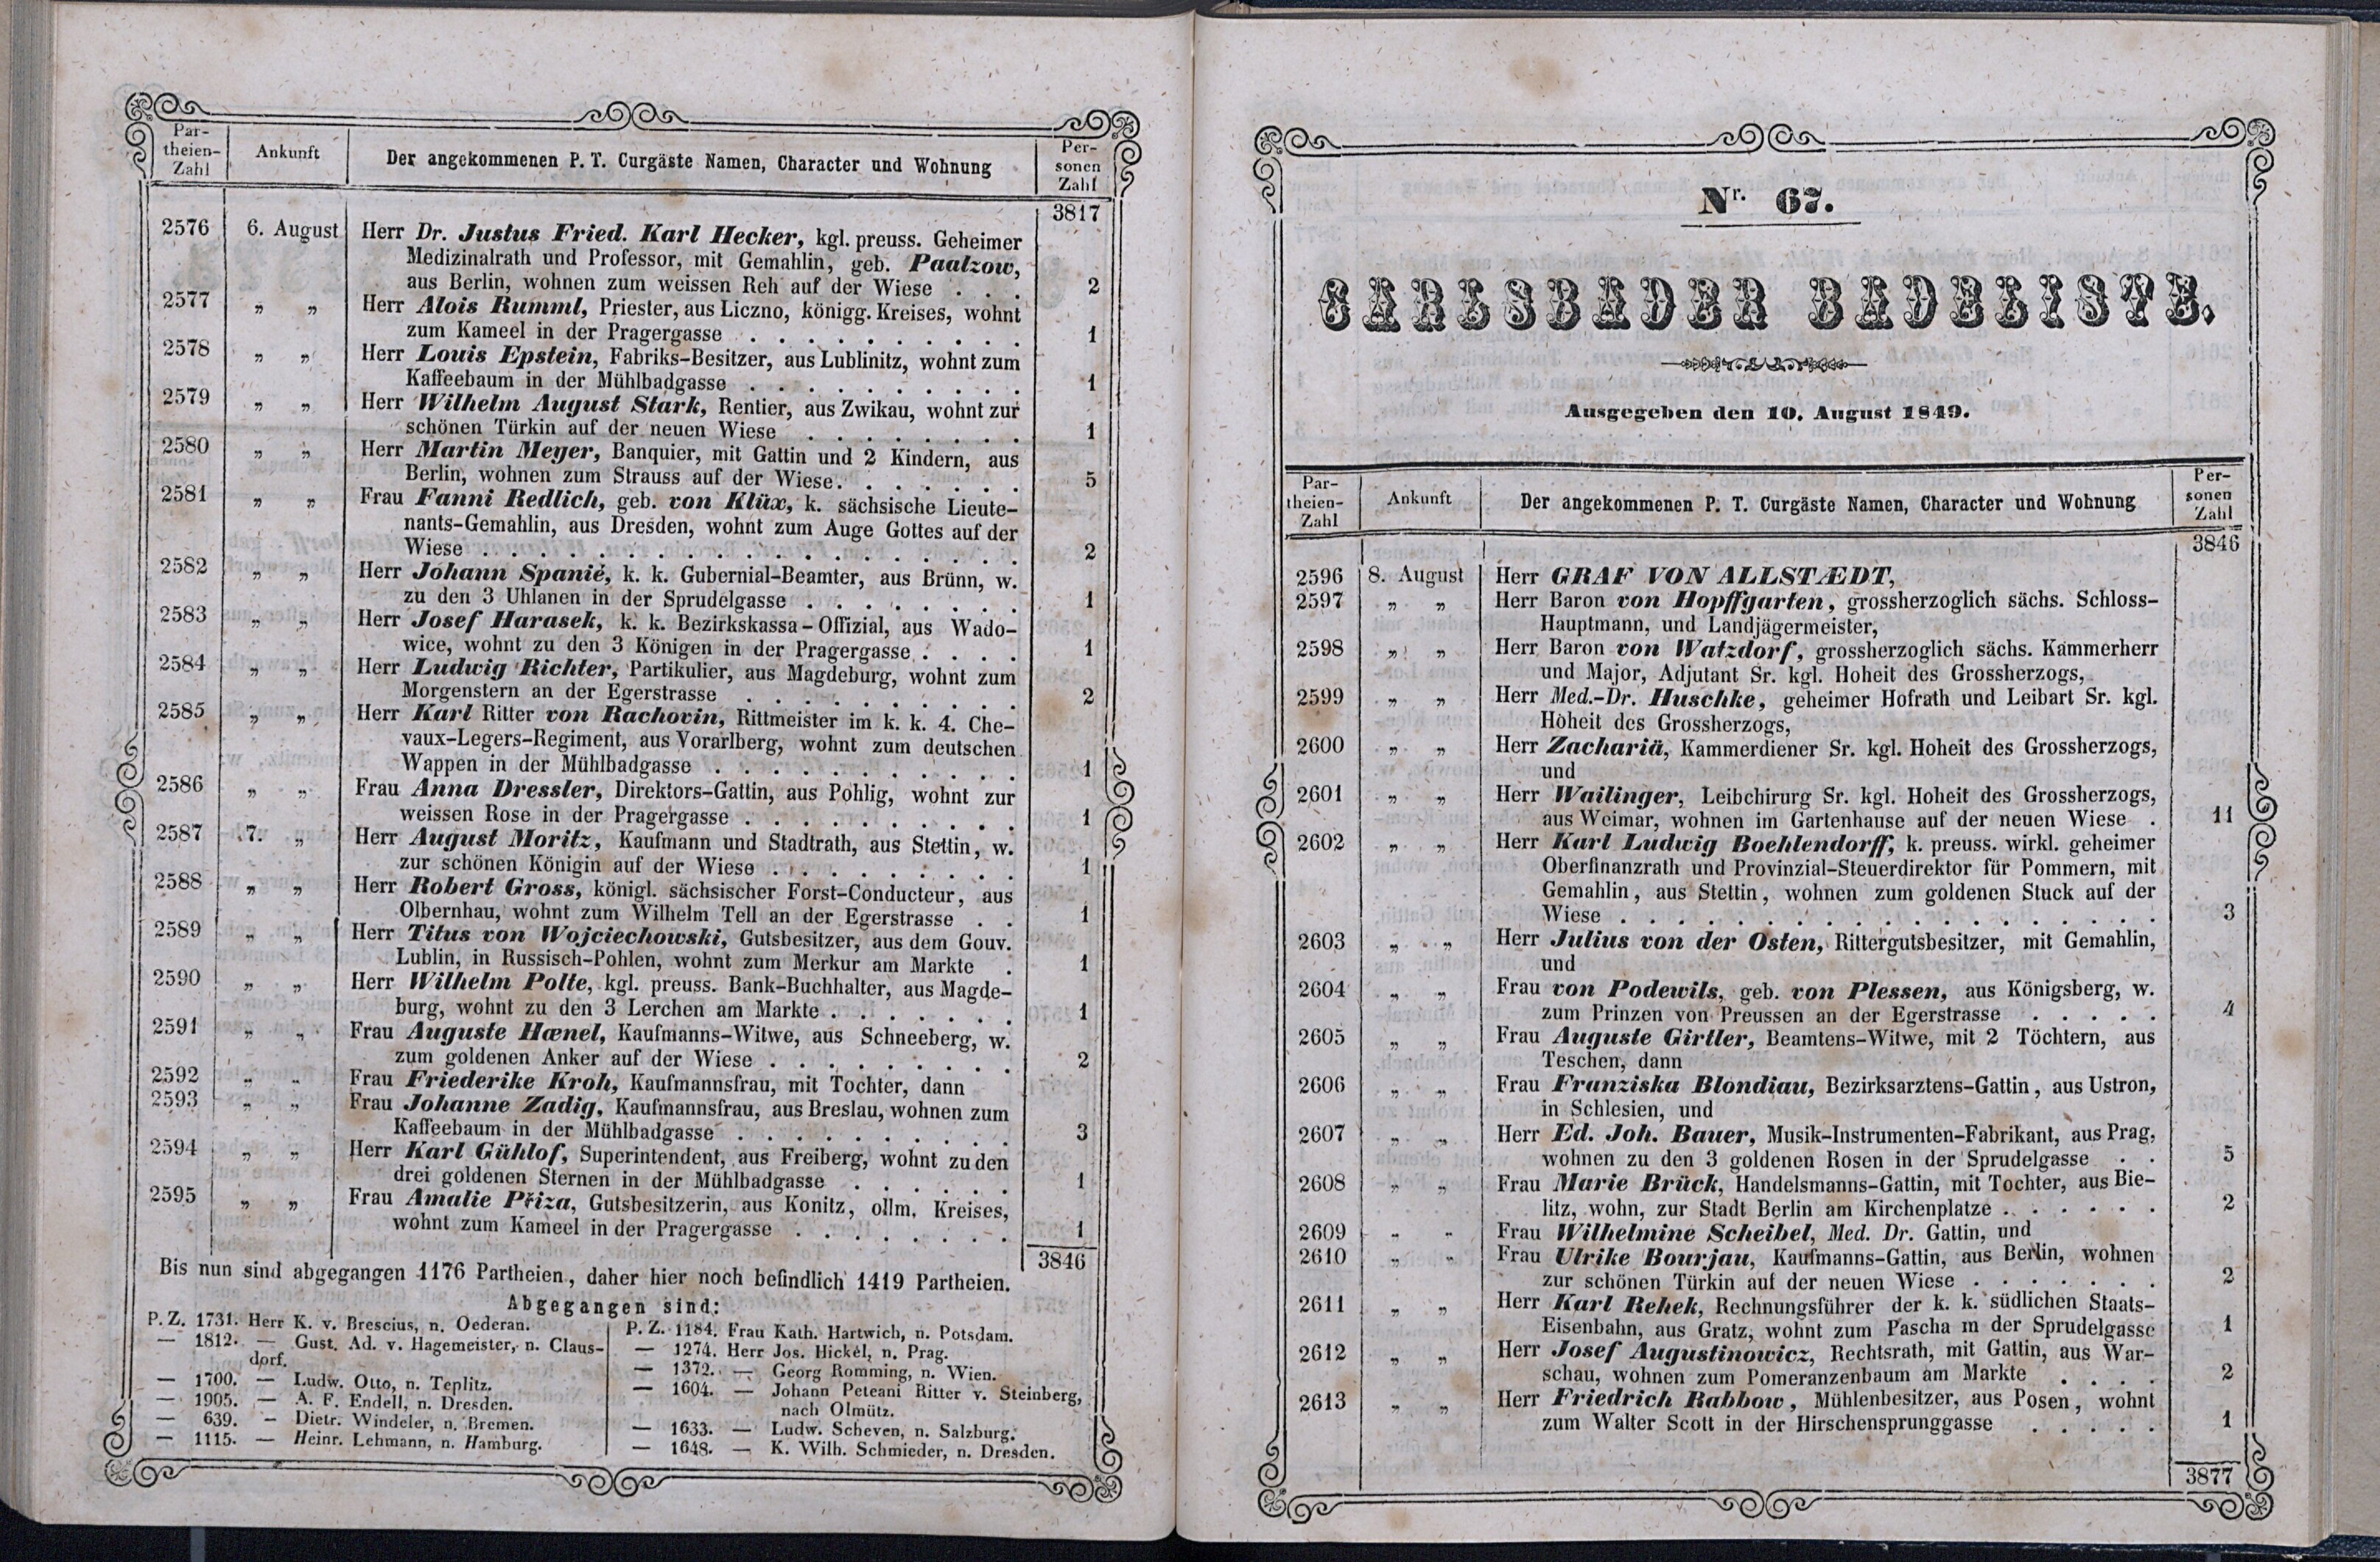 Par-
theien-
Zahl
Ankunft
Der angekommenen P. T. Curgäste Namen, Character und Wohnung
Per-
sonen
Zahl
3817
2576 6. August Herr Dr. Justus Fried. Karl Hecker, kgl. preuss. Geheimer
Medizinalrath und Professor, mit Gemahlin, geb. Paalzow,
aus Berlin, wohnen zum weissen Reh auf der Wiese . . . 2
2577 „ „ Herr Alois Rumml, Priester, aus Liczno, königg. Kreises, wohnt
zum Kameel in der Pragergasse . . . . . . . . . . 1
2578 „ „ Herr Louis Epstein, Fabriks-Besitzer, aus Lublinitz, wohnt zum
Kaffeebaum in der Mühlbadgasse . . . . . . . . . . 1
2579 „ „ Herr Wilhelm August Stark, Rentier, aus Zwikau, wohnt zur
schönen Türkin auf der neuen Wiese . . . . . . . . 1
2580 „ „ Herr Martin Meyer, Banquier, mit Gattin und 2 Kindern, aus
Berlin, wohnen zum Strauss auf der Wiese. . . . . . . 5
2581 „ „ Frau Fanni Redlich, geb. von Klüx, k. sächsische Lieute-
nants-Gemahlin, aus Dresden, wohnt zum Auge Gottes auf der
Wiese . . . . . . . . . . . . . . . . . . . 2
2582 „ „ Herr Johann Spanié, k. k. Gubernial-Beamter, aus Brünn, w.
zu den 3 Uhlanen in der Sprudelgasse . . . . . . . . 1
2583 „ „ Herr Josef Harasek, k. k. Bezirkskassa-Offizial, aus Wado-
wice, wohnt zu den 3 Königen in der Pragergasse . . . . 1
2584 „ „ Herr Ludwig Richter, Partikulier, aus Magdeburg, wohnt zum
Morgenstern an der Egerstrasse . . . . . . . . . . 2
2585 „ „ Herr Karl Ritter von Rachovin, Rittmeister im k. k. 4. Che-
vaux-Legers-Regiment, aus Vorarlberg, wohnt zum deutschen
Wappen in der Mühlbadgasse . . . . . . . . . . . 1
2586 „ „ Frau Anna Dressler, Direktors-Gattin, aus Pohlig, wohnt zur
weissen Rose in der Pragergasse . . . . . . . . . . 1
2587 7. „ Herr August Moritz, Kaufmann und Stadtrath, aus Stettin, w.
zur schönen Königin auf der Wiese . . . . . . . . . 1
2588 „ „ Herr Robert Gross, königl. sächsischer Forst-Conducteur, aus
Olbernhau, wohnt zum Wilhelm Tell an der Egerstrasse . . 1
2589 „ „ Herr Titus von Wojciechowski, Gutsbesitzer, aus dem Gouv.
Lublin, in Russisch-Pohlen, wohnt zum Merkur am Markte . 1
2590 „ „ Herr Wilhelm Polte, kgl. preuss. Bank-Buchhalter, aus Magde-
burg, wohnt zu den 3 Lerchen am Markte . . . . . . . 1
2591 „ „ Frau Auguste Hænel, Kaufmanns-Witwe, aus Schneeberg, w.
zum goldenen Anker auf der Wiese . . . . . . . . . 2
2592 „ „ Frau Friederike Kroh, Kaufmannsfrau, mit Tochter, dann
2593 „ „ Frau Johanne Zadig, Kaufmannsfrau, aus Breslau, wohnen zum
Kaffeebaum in der Mühlbadgasse . . . . . . . . . . 3
2594 „ „ Herr Karl Gühlof, Superintendent, aus Freiberg, wohnt zu den
drei goldenen Sternen in der Mühlbadgasse . . . . . . 1
2595 „ „ Frau Amalie Přiza, Gutsbesitzerin, aus Konitz, ollm. Kreises,
wohnt zum Kameel in der Pragergasse . . . . . . . . 1
3846
Bis nun sind abgegangen 1176 Partheien, daher hier noch befindlich 1419 Partheien.
Abgegangen sind:
P. Z. 1731. Herr K. v. Brescius, n. Oederan.
— 1812. — Gust. Ad. v. Hagemeister, n. Claus-
dorf.
— 1700. — Ludw. Otto, n. Teplitz.
— 1905. — A. F. Endell, n. Dresden.
— 639. — Dietr. Windeler, n. Bremen.
— 1115. — Heinr. Lehmann, n. Hamburg.
P. Z. 1184. Frau Kath. Hartwich, n. Potsdam.
— 1274. Herr Jos. Hickel, n. Prag.
— 1372. — Georg Romming, n. Wien.
— 1604. — Johann Peteani Ritter v. Steinberg,
nach Olmütz.
— 1633. — Ludw. Scheven, n. Salzburg.
— 1648. — K. Wilh. Schmieder, n. Dresden.
Nr. 67.
CARLSBADER BADELISTE.
Ausgegeben den 10. August 1849.
Par-
theien-
Zahl
Ankunft
Der angekommenen P. T. Curgäste Namen, Character und Wohnung
Per-
sonen
Zahl
3846
2596 8. August Herr GRAF VON ALLSTÆDT,
2597 „ „ Herr Baron von Hopffgarten, grossherzoglich sächs. Schloss-
Hauptmann, und Landjägermeister,
2598 „ „ Herr Baron von Watzdorf, grossherzoglich sächs. Kammerherr
und Major, Adjutant Sr. kgl. Hoheit des Grossherzogs,
2599 „ „ Herr Med.-Dr. Huschke, geheimer Hofrath und Leibart Sr. kgl.
Hoheit des Grossherzogs,
2600 „ „ Herr Zachariä, Kammerdiener Sr. kgl. Hoheit des Grossherzogs,
und
2601 „ „ Herr Wailinger, Leibchirurg Sr. kgl. Hoheit des Grossherzogs,
aus Weimar, wohnen im Gartenhause auf der neuen Wiese . 11
2602 „ „ Herr Karl Ludwig Boehlendorff, k. preuss. wirkl. geheimer
Oberfinanzrath und Provinzial-Steuerdirektor für Pommern, mit
Gemahlin, aus Stettin, wohnen zum goldenen Stuck auf der
Wiese . . . . . . . . . . . . . . . . . . . 3
2603 „ „ Herr Julius von der Osten, Rittergutsbesitzer, mit Gemahlin,
und
2604 „ „ Frau von Podewils, geb. von Plessen, aus Königsberg, w.
zum Prinzen von Preussen an der Egerstrasse . . . . . 4
2605 „ „ Frau Auguste Girtler, Beamtens-Witwe, mit 2 Töchtern, aus
Teschen, dann
2606 „ „ Frau Franziska Blondiau, Bezirksarztens-Gattin, aus Ustron,
in Schlesien, und
2607 „ „ Herr Ed. Joh. Bauer, Musik-Instrumenten-Fabrikant, aus Prag,
wohnen zu den 3 goldenen Rosen in der Sprudelgasse . . 5
2608 „ „ Frau Marie Brück, Handelsmanns-Gattin, mit Tochter, aus Bie-
litz, wohn, zur Stadt Berlin am Kirchenplatze . . . . . . 2
2609 „ „ Frau Wilhelmine Scheibel, Med. Dr. Gattin, und
2610 „ „ Frau Ulrike Bourjau, Kaufmanns-Gattin, aus Berlin, wohnen
zur schönen Türkin auf der neuen Wiese . . . . . . . 2
2611 „ „ Herr Karl Rehek, Rechnungsführer der k. k. südlichen Staats-
Eisenbahn, aus Gratz, wohnt zum Pascha in der Sprudelgasse 1
2612 „ „ Herr Josef Augustinowicz, Rechtsrath, mit Gattin, aus War-
schau, wohnen zum Pomeranzenbaum am Markte . . . . 2
2613 „ „ Herr Friedrich Rabbow, Mühlenbesitzer, aus Posen, wohnt
zum Walter Scott in der Hirschensprunggasse . . . . . 1
3877